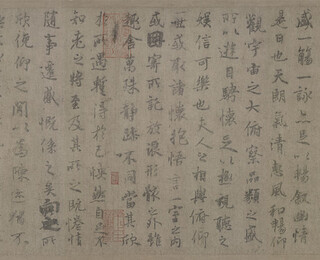 盛一觴一詠亦足以暢敘幽情
是日也天朗氣清惠風和暢仰
觀宇宙之大俯察品類之盛
所以遊目騁懷足以極視聽之
娛信可樂也夫人之相與俯仰
一世或取諸懷抱悟言一室之內
或因寄所託放浪形骸之外雖
趣舍萬殊靜躁不同當其欣
於所遇暫得於己怏然自足不
知老之將至及其所之既惓情
隨事遷感慨係之矣向之所
欣俛仰之間以為陳迹猶不